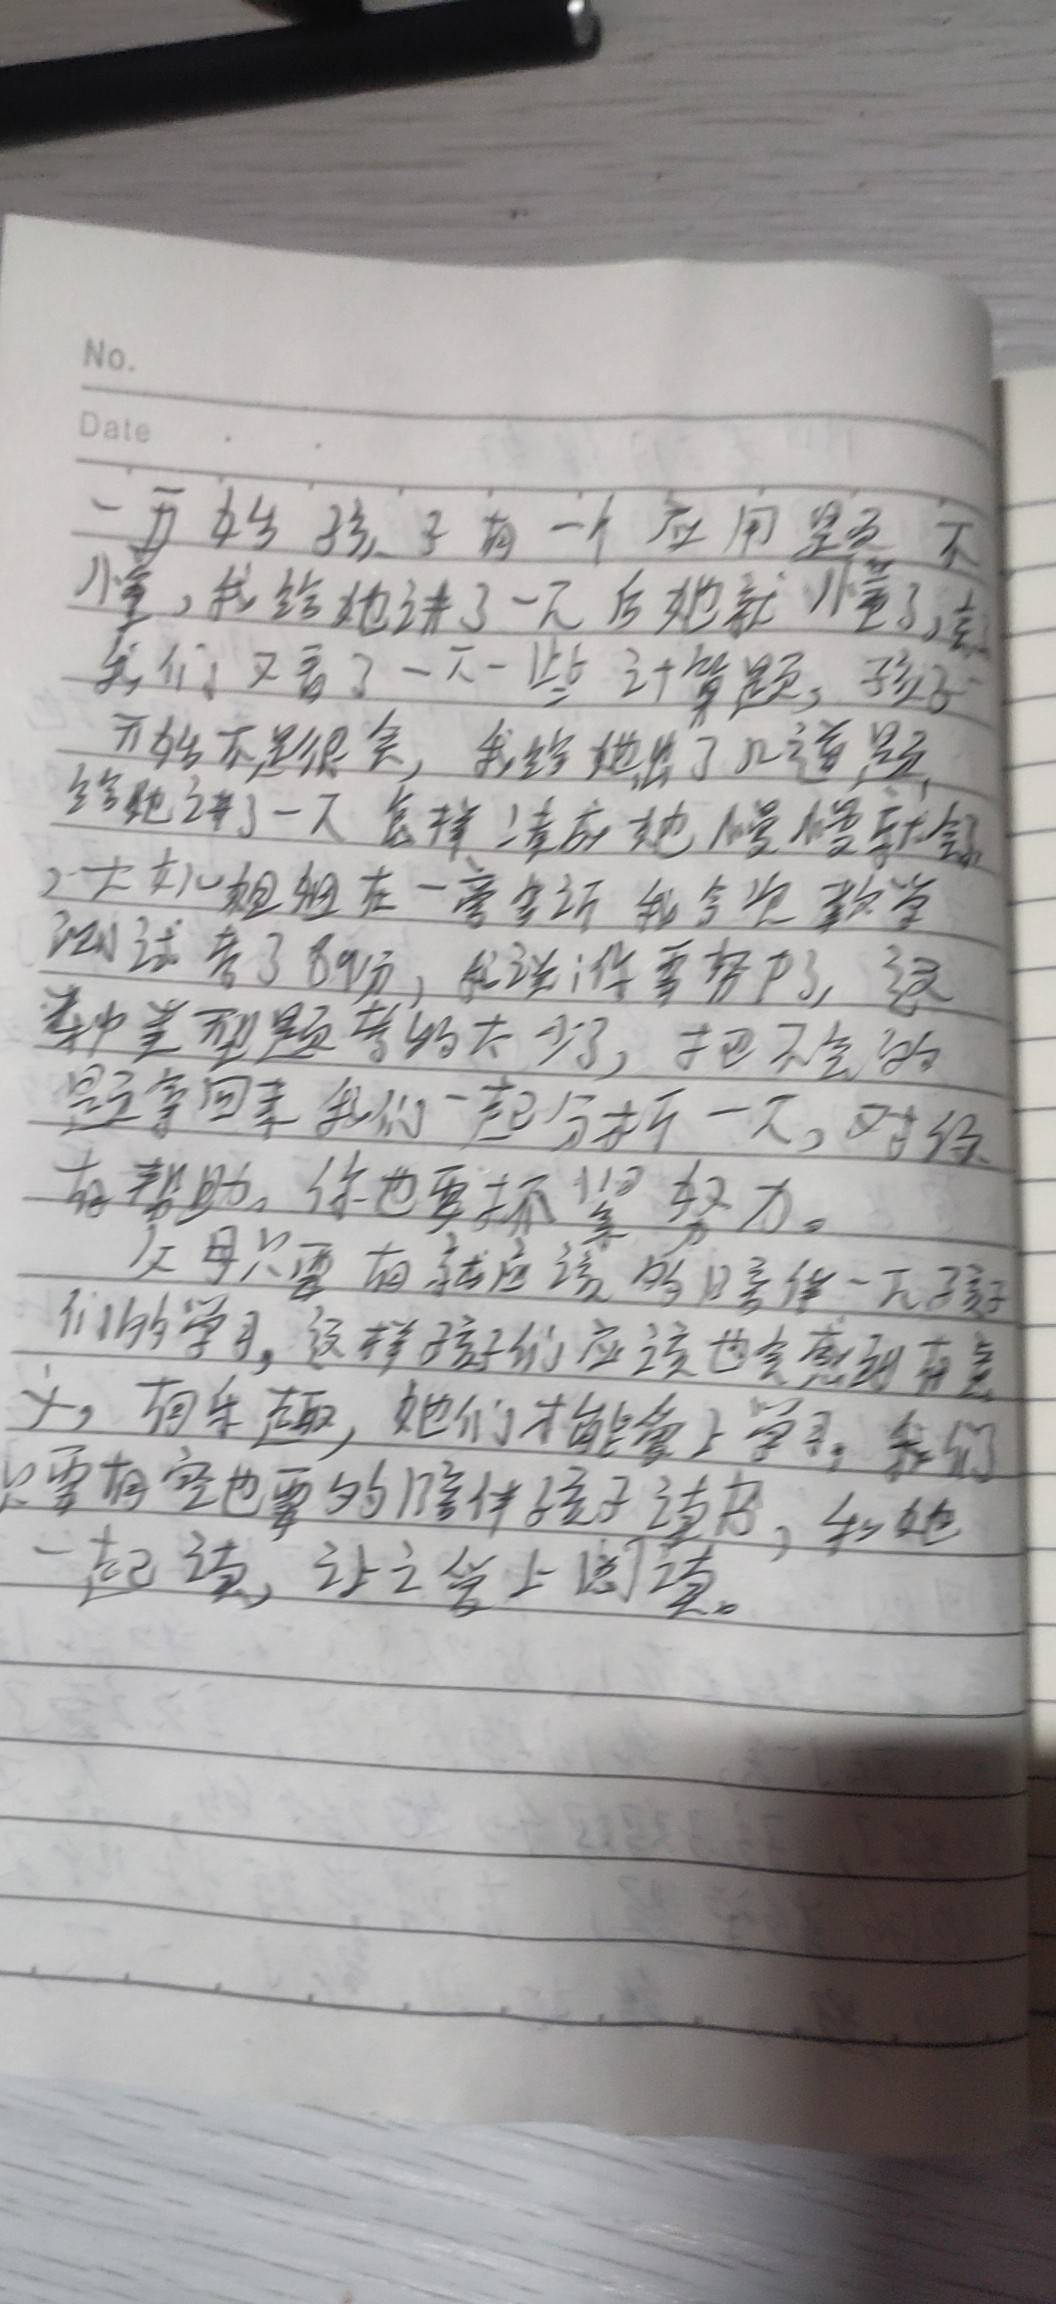 No.
Date
一开始孩子有一个应用题不
懂,我给她讲了一下后她就懂了,
我们又看了一下一些计算题,孩子一
开始不是很会,我给她出了几道题,
给她讲了一下怎样读后她慢慢就会了
大女儿姐姐在一旁 我今次数学
测试考了89分,我说你要努力了,这
种类型题考的太少了,把不会的
题拿回来我们一起分析一下,对你
有帮助。你也要抓紧努力。
父母只要有就应该的陪伴一下孩子
们的学习,这样孩子们应该也会感到有意
义,有乐趣,她们才能爱上学习。我们
只要有空也要的陪伴孩子读书,和她
一起读,让之爱上阅读。